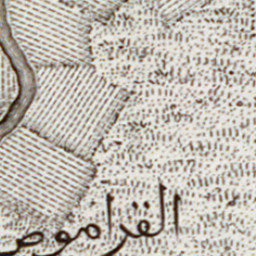 القراموص